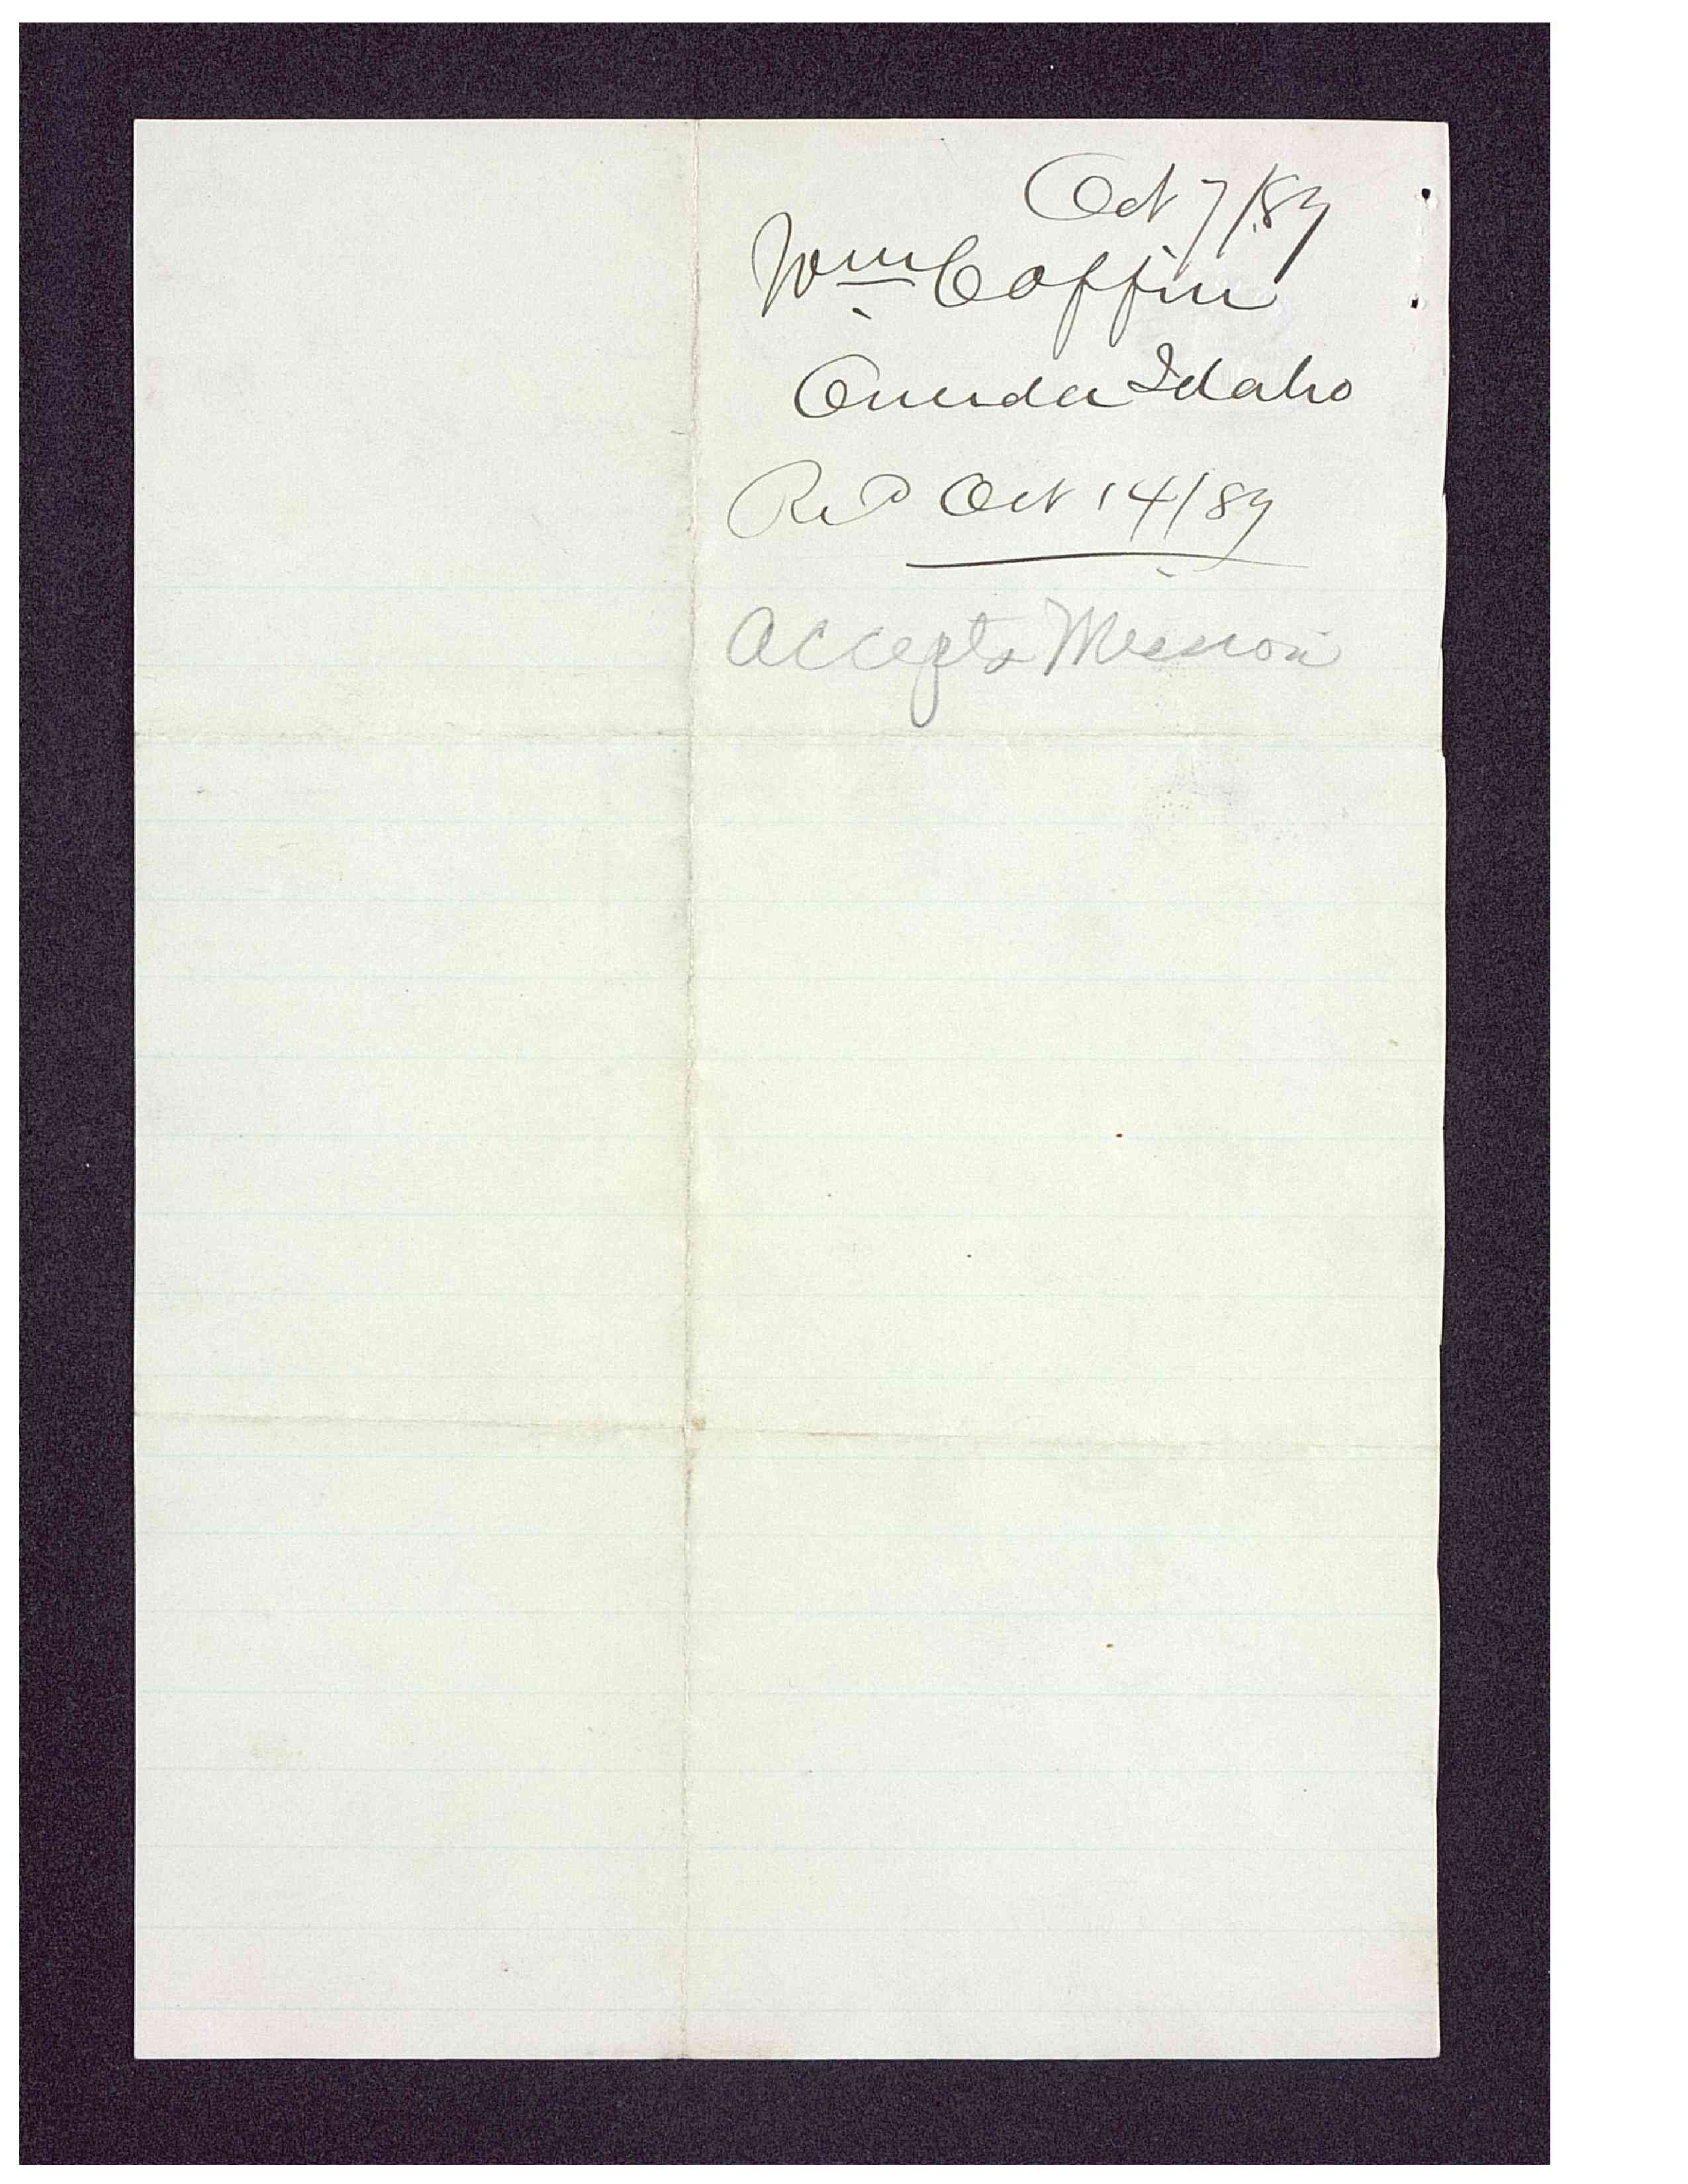 Oct 7/89
Wm Coffin
Oneida Idaho
Recd Oct 14/89
Accepts Mission